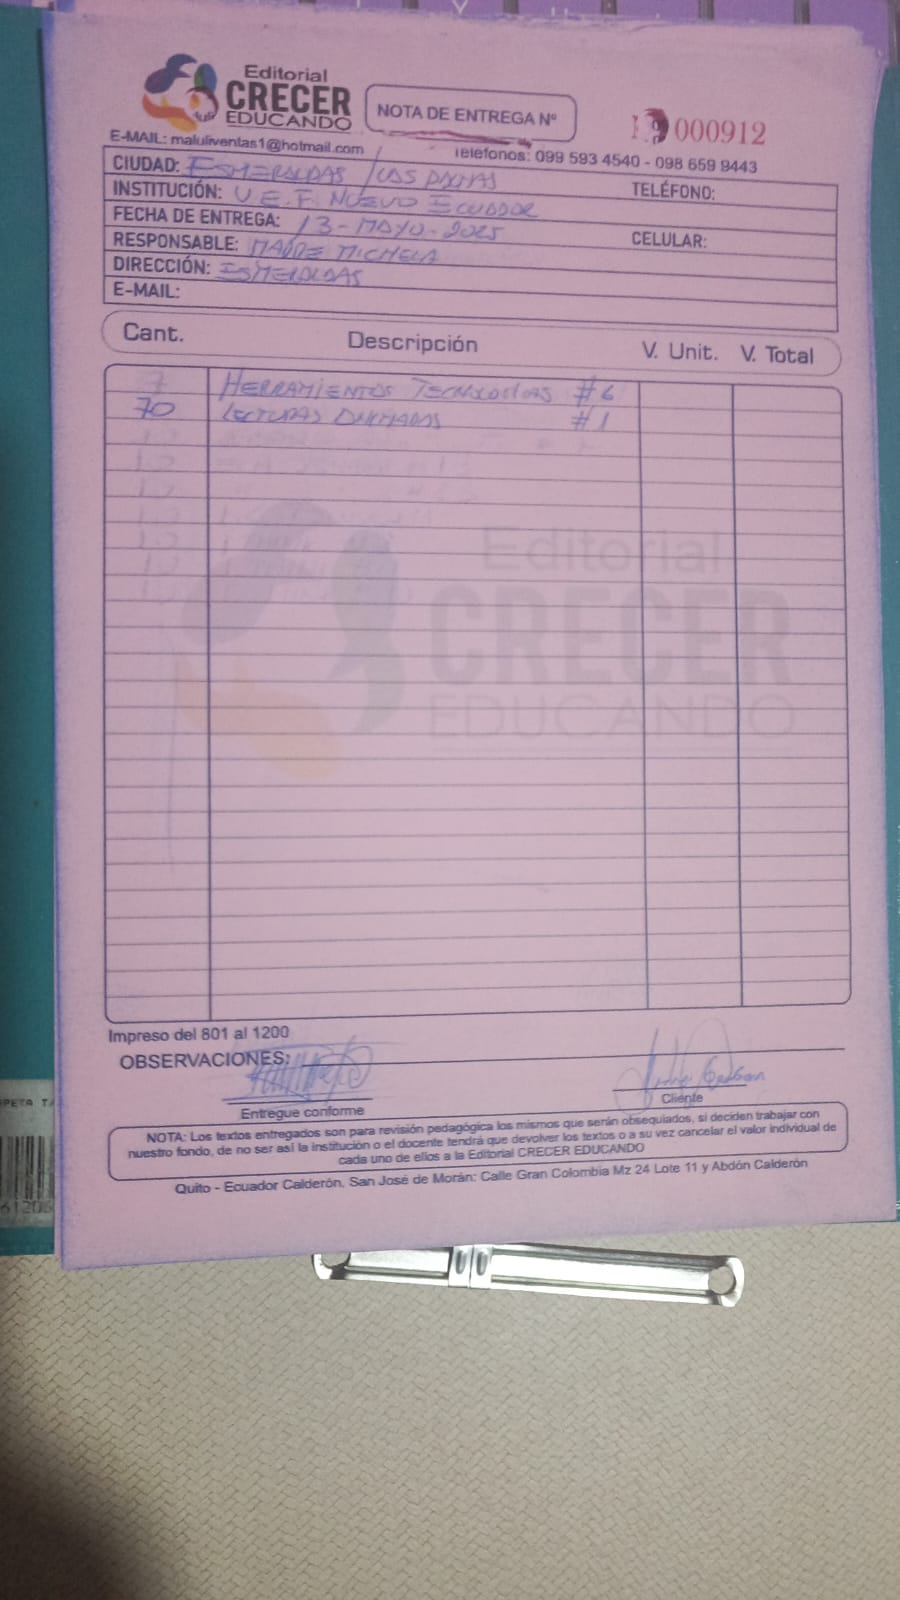 Editorial
CRECER
EDUCANDO
NOTA DE ENTREGA Nº
000912
E-MAIL: maluliventas1@hotmail.com
Telefonos: 099 593 4540 - 098 659 9443
CIUDAD: ESMERALDAS / LAS PALMAS
TELÉFONO:
INSTITUCIÓN: U.E.F. NUEVO ECUADOR
FECHA DE ENTREGA: 13-MAYO-2025
CELULAR:
RESPONSABLE: MADRE MICHELA
DIRECCIÓN: ESMERALDAS
E-MAIL:
Cant. Descripción V. Unit. V. Total
7 HERRAMIENTAS TECNOLOGICAS #6
70 LECTURAS #1
Editorial
CRECER
EDUCANDO
Impreso del 801 al 1200
OBSERVACIONES:
Entregue conforme
Cliente
NOTA: Los textos entregados son para revisión pedagógica los mismos que serán obsequiados, si deciden trabajar con
nuestro fondo, de no ser así la institución o el docente tendrá que devolver los textos o a su vez cancelar el valor individual de
cada uno de ellos a la Editorial CRECER EDUCANDO
Quito - Ecuador Calderón, San José de Morán: Calle Gran Colombia Mz 24 Lote 11 y Abdón Calderón